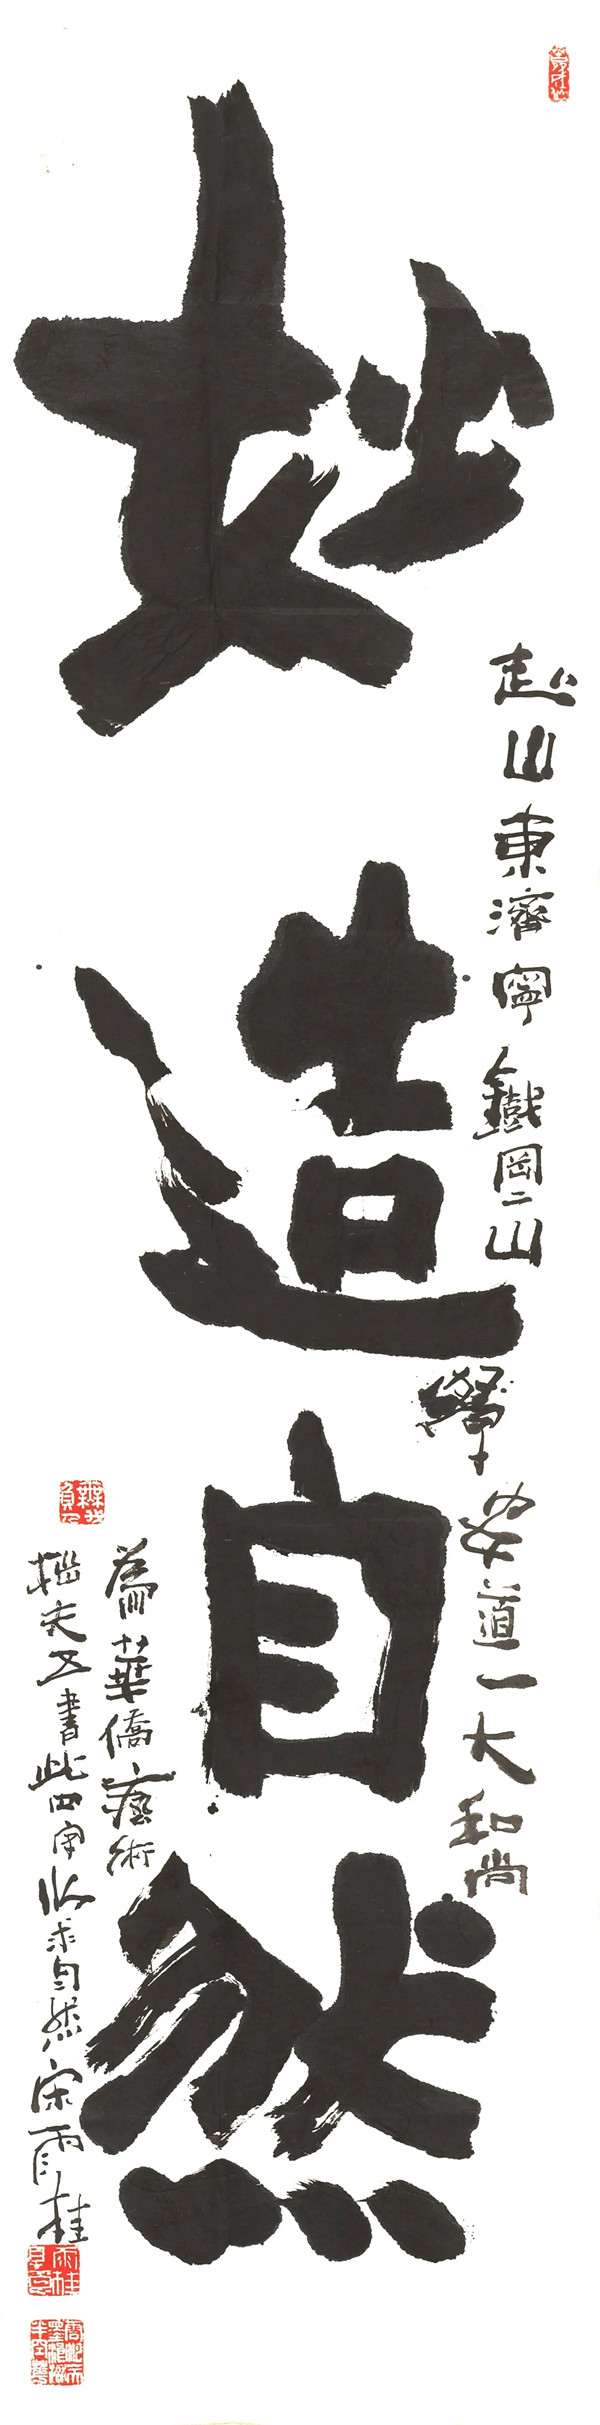 妙造自然
赴山東濟寧鐵岡二山
學安道一大和尚
為華僑藝術
拙夫又書此四字以求自然宋雨桂